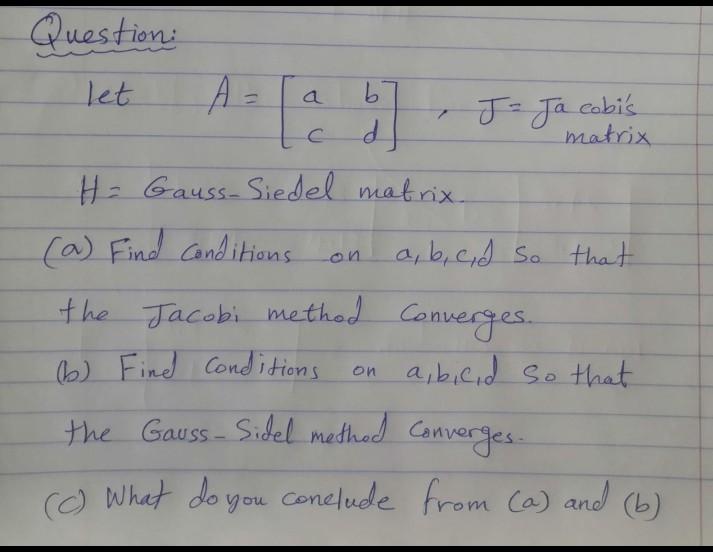 Question:
let A = [ a b , J = Jacobi's
c d ] matrix
H = Gauss-Siedel matrix.
(a) Find Conditions on a,b,c,d so that
the Jacobi method Converges.
(b) Find Conditions on a,b,c,d so that
the Gauss-Sidel method Converges.
(c) What do you conclude from (a) and (b)